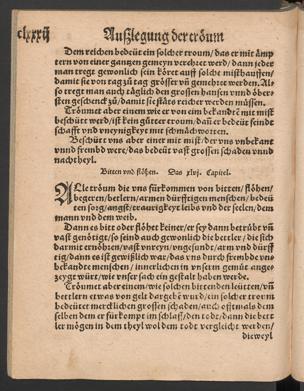 clxxxij Außlegung der tröum
Dem reichen bedeüt ein solcher troum / das er mit ämp
tern von einer gantzen gemeyn verehret werd / dann jeder
man tregt gewonlich sein köret auff solche misthauffen /
damit sie von tag zů tag grösser vnnd gemert werden. Al
so tregt man auch täglich den grossen hansen vnnd öber
sten geschenck zů / damit sie stäts reicher werden müssen.
Tröumet aber einem wie er von eim bekandtē mit mist
beschütt werd / ist kein gůter troum / dañ er bedeüt feindt
schafft vnd vneynigkeyt mit schmächworten.
Beschütt vns aber einer mit mist / der vns vnbekant
vnnd frembd were / das bedeüt vast grossen schaden vnnd
nachtheyl.
Bitten vnd flöhen. Das xlvj. Capitel.
Alle tröum die vns fürkommen von bitten / flöhen /
begeren / betlern / armen dürfftigen menschen / bedeü
ten sorg / angst / traurigkeyt leibs vnd der seelen / dem
mann vnd dem weib.
Dann es bitt oder flöhet keiner / er sey dann betrübt vñ
vast genötiget / so sind auch gewonlich die betler / die sich
darmit ernöhren / vast vnreyn / vngesundt / arm vnd dürff
tig / dann es ist gewißlich war / das vns durch frembde vn
bekandte menschen / innerlich in vnserm gemüt ange-
zeygt würt / wie vnser sach ein gestalt haben werde.
Tröumet aber einem / wie solchen bittenden leütten / vñ
bettlern etwas von gelt dargebē wurd / ein solcher troum
bedeütet mercklichen grossen schaden / auch offtmals dem
selben dem er fürkompt im schlaff / den todt / dann die bett
ler mögen in dem theyl wol dem todt vergleicht werden /
dieweyl